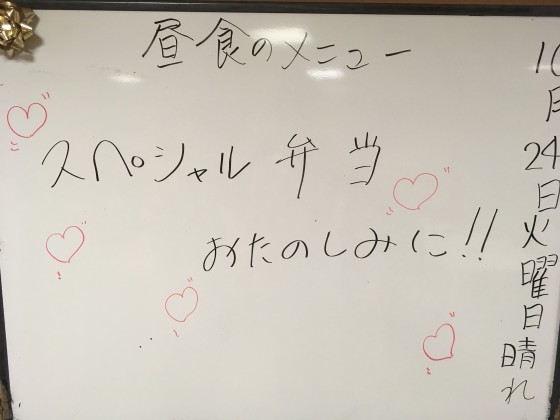 昼食のメニュー
スペシャル弁当
おたのしみに!!
10月24日火曜日晴れ